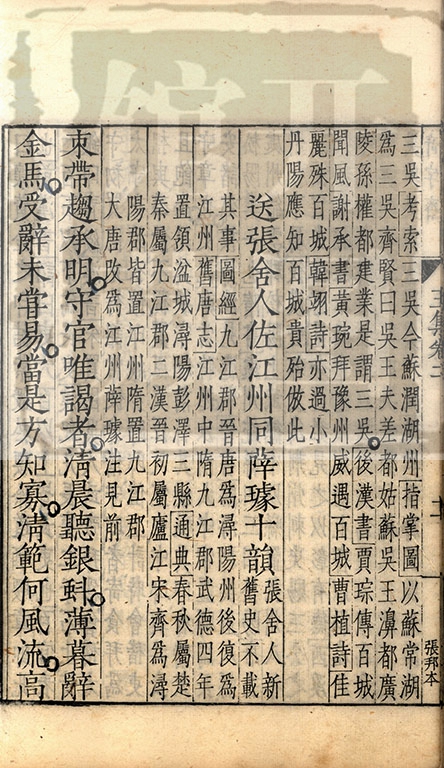 三吳考索三吳今蘇潤湖州指掌圖以蘇常湖
爲三吳齊賢曰吳王夫差都姑蘇吳王濞都廣
陵孫權都建業是謂三吳後漢書賈琮傳百城
聞風謝承書黃琬拜豫州威邁百城曹植詩佳
麗殊百城韓翃詩亦過小
丹陽應知百城貴殆倣此
送張舍人佐江州同薛璩十韻
張舍人新
舊史不載
其事圖經九江郡晉唐爲潯陽州後復爲
江州舊唐志江州中隋九江郡武德四年
置領湓城潯陽彭澤三縣通典春秋屬楚
秦屬九江郡二漢晉初屬廬江宋齊爲潯
陽郡皆置江州隋置九江郡
大唐改爲江州薛璩注見前
束帶趨承明守官唯謁者清晨聽銀蚪薄暮辭
金馬受辭未嘗易當是方知寡清範何風流高
張邦本